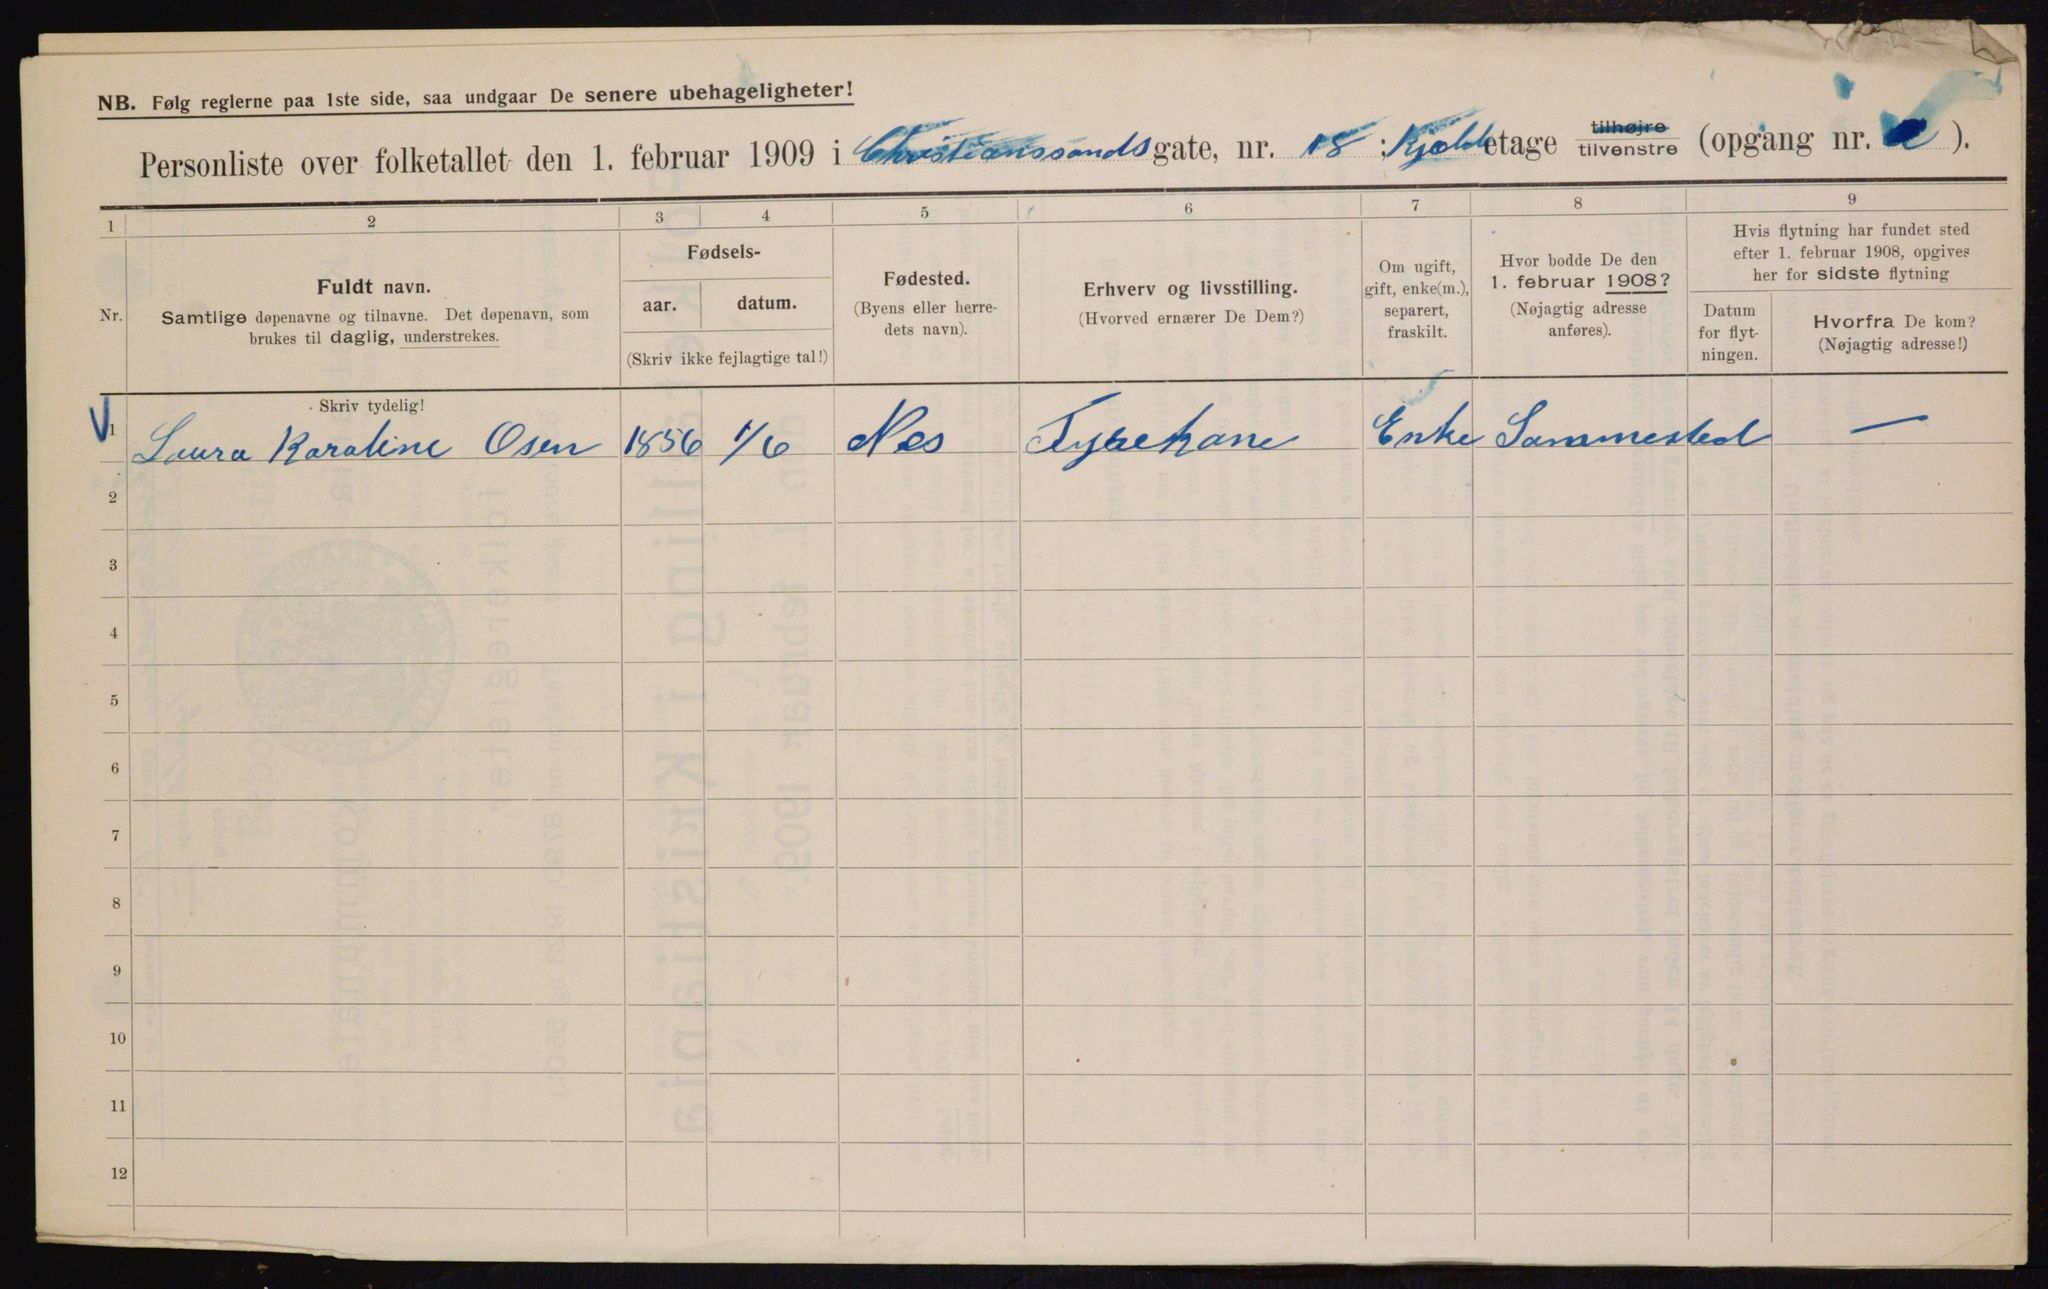 NB. Følg reglerne paa 1ste side, saa undgaar De senere ubehageligheter!
Personliste over folketallet den 1. februar 1909 i Christianssandsgate, nr. 18 ; Kjælderetage tilhøjre tilvenstre (opgang nr. ).
1 2 3 4 5 6 7 8 9
Nr.
Fuldt navn.
Samtlige døpenavne og tilnavne. Det døpenavn, som
brukes til daglig, understrekes.
Fødsels-
aar. datum.
(Skriv ikke fejlagtige tal!)
Fødested.
(Byens eller herre-
dets navn).
Erhverv og livsstilling.
(Hvorved ernærer De Dem?)
Om ugift,
gift, enke(m.),
separert,
fraskilt.
Hvor bodde De den
1. februar 1908?
(Nøjagtig adresse
anføres).
Hvis flytning har fundet sted
efter 1. februar 1908, opgives
her for sidste flytning
Datum
for flyt-
ningen.
Hvorfra De kom?
(Nøjagtig adresse!)
Skriv tydelig!
1 Laura Karoline Osen 1856 1/6 Nes Enke Sammested —
2
3
4
5
6
7
8
9
10
11
12